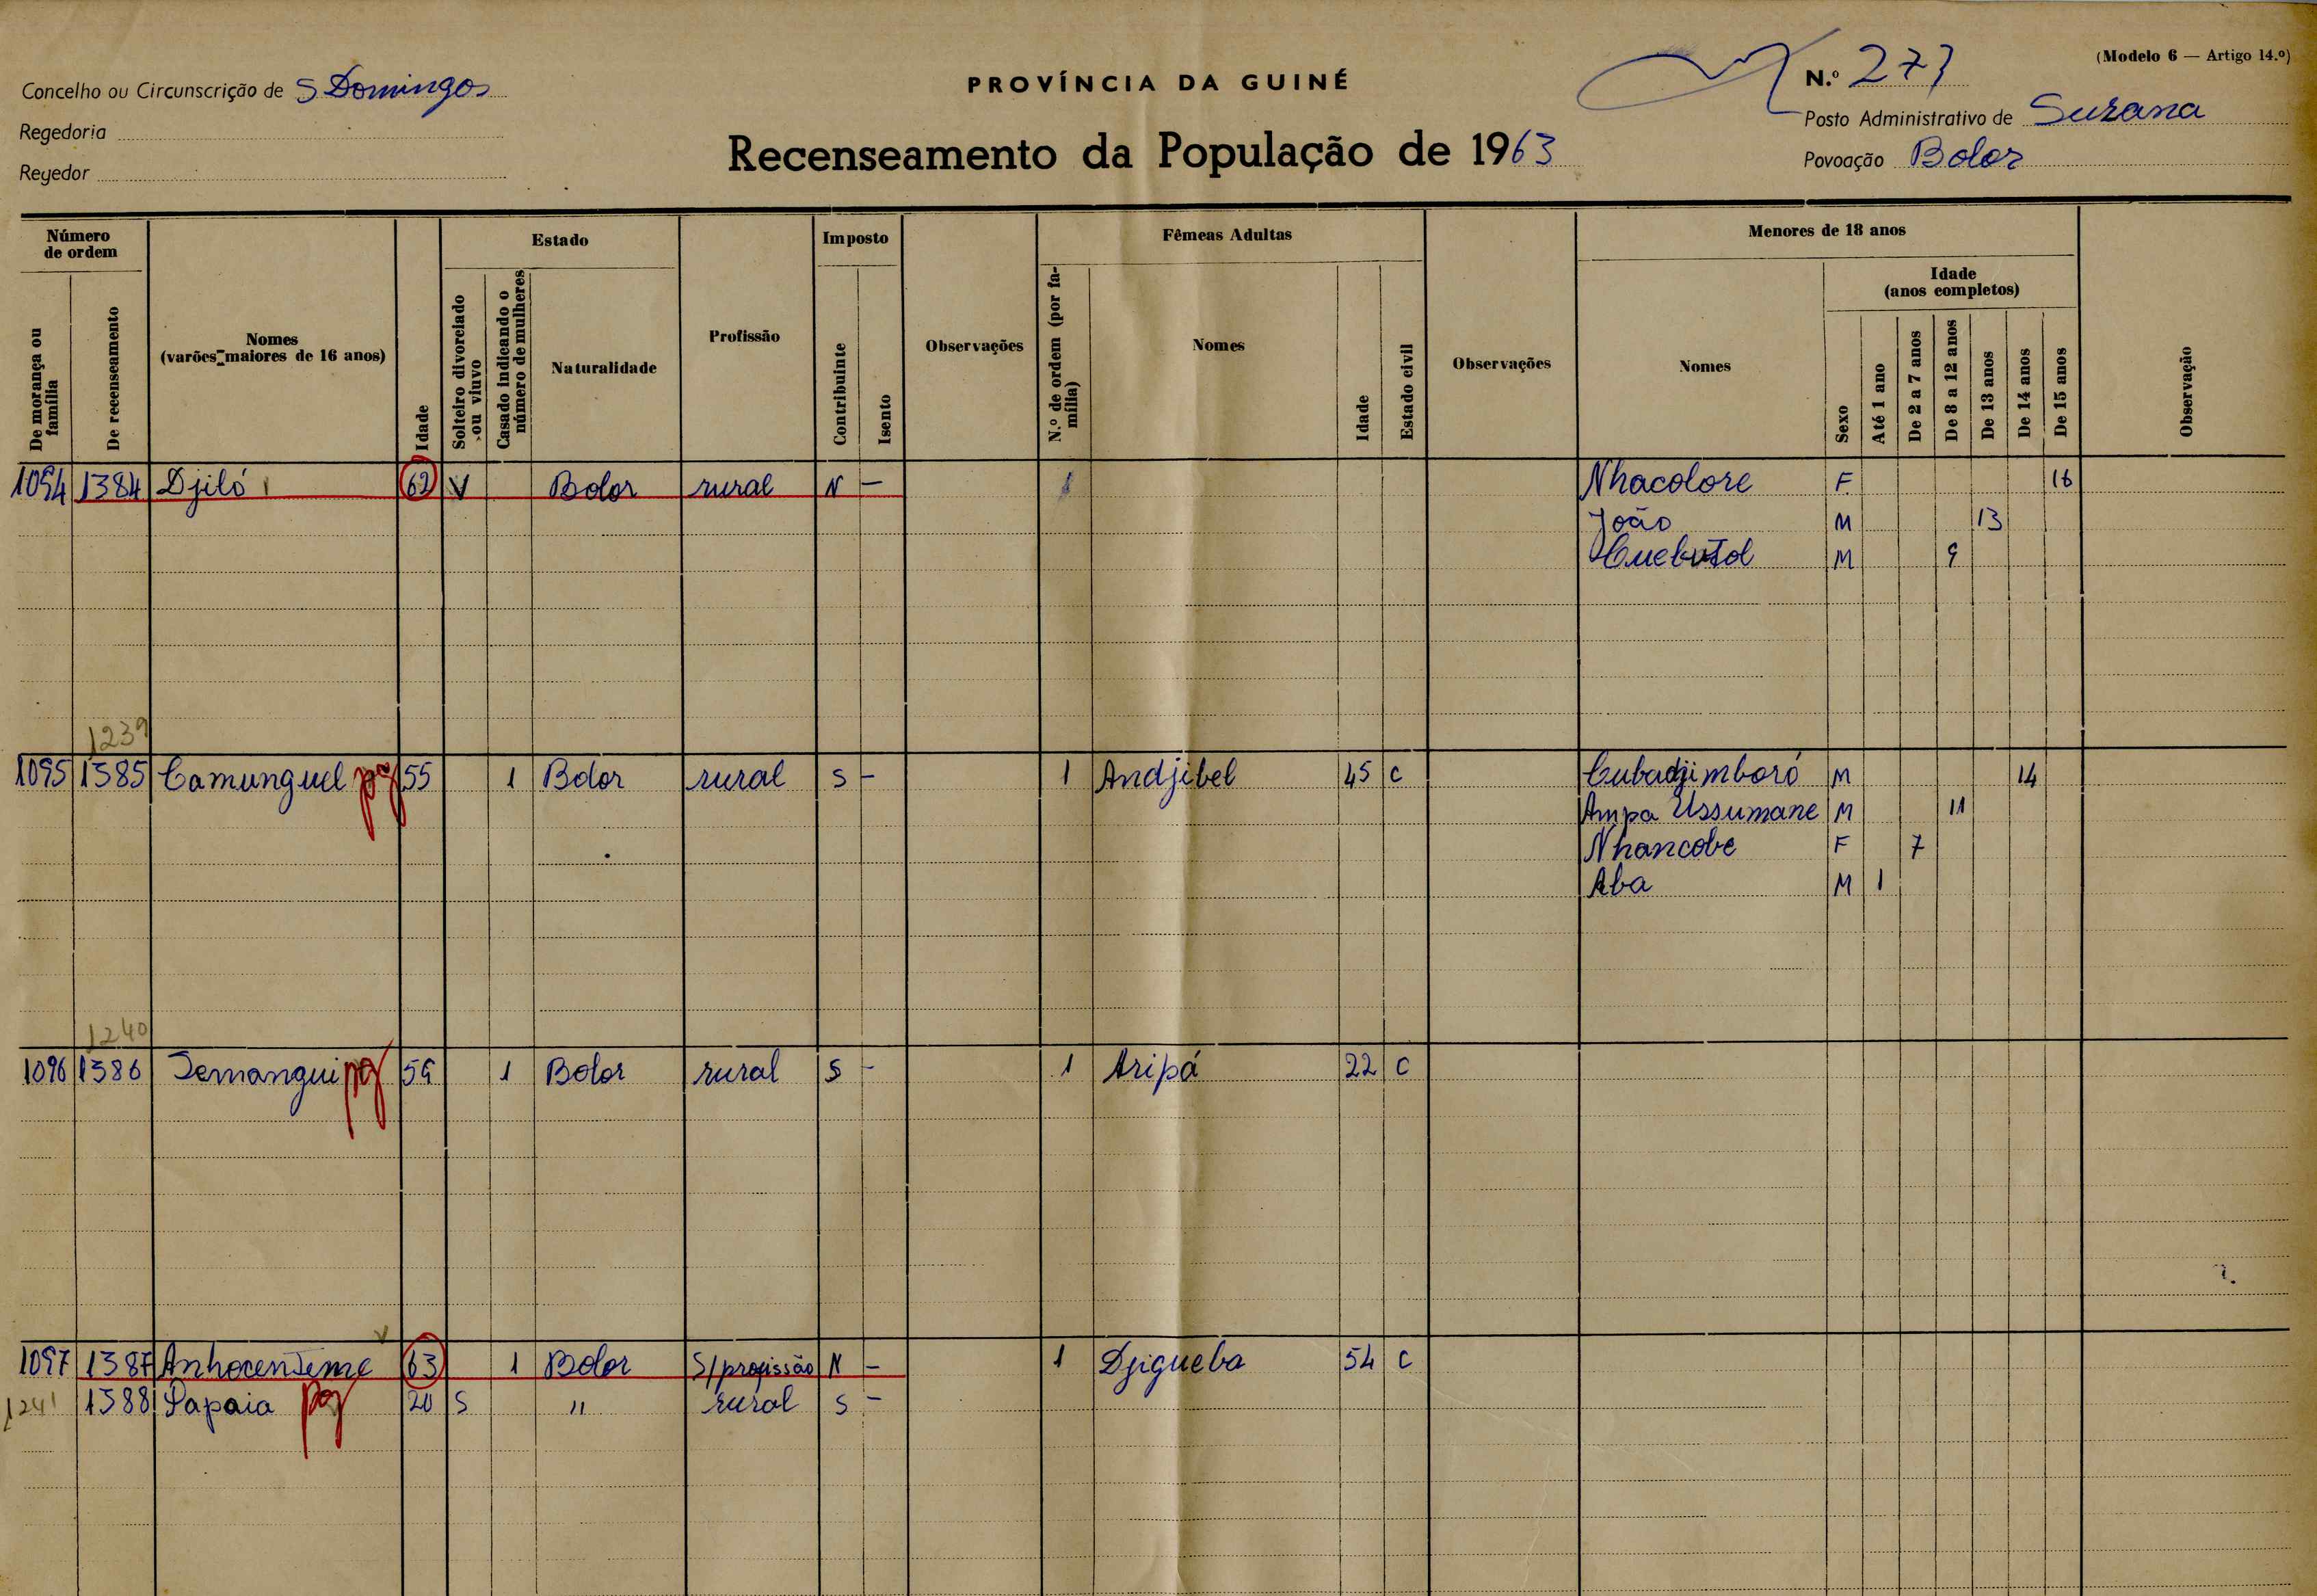 (Modelo 6 — Artigo 14.º)
Concelho ou Circunscrição de S Domingos
PROVÍNCIA DA GUINÉ
N.º 273
Regedoria
Posto Administrativo de Suzana
Recenseamento da População de 1963
Regedor
Povoação Bolor
Número de ordem
Estado
Imposto
Fêmeas Adultas
Menores de 18 anos
De morança ou família
De recenseamento
Nomes (varões maiores de 16 anos)
Idade
Solteiro divorciado ou viuvo
Casado indicando o número de mulheres
Naturalidade
Profissão
Contribuinte
Isento
Observações
N.º de ordem (por família)
Nomes
Idade
Estado civil
Observações
Nomes
Sexo
Idade (anos completos)
Até 1 ano
De 2 a 7 anos
De 8 a 12 anos
De 13 anos
De 14 anos
De 15 anos
Observação
1094 1384 Djiló 62 V Bolor rural N — 1 Nhacolore F 16
João M 13
M 9
1239
1095 1385 Camunguel pg 55 1 Bolor rural S — 1 Andjibel 45 C Cubadjimboró M 14
Ampa Ussumane M 11
Nhancobe F 7
Aba M 1
1240
1096 1386 Jemangui pg 59 1 Bolor rural S — 1 Aripá 22 C
1097 1387 63 1 Bolor S/profissão N — 1 Djigueba 54 C
1241 1388 Papaia pg 20 S " rural S —